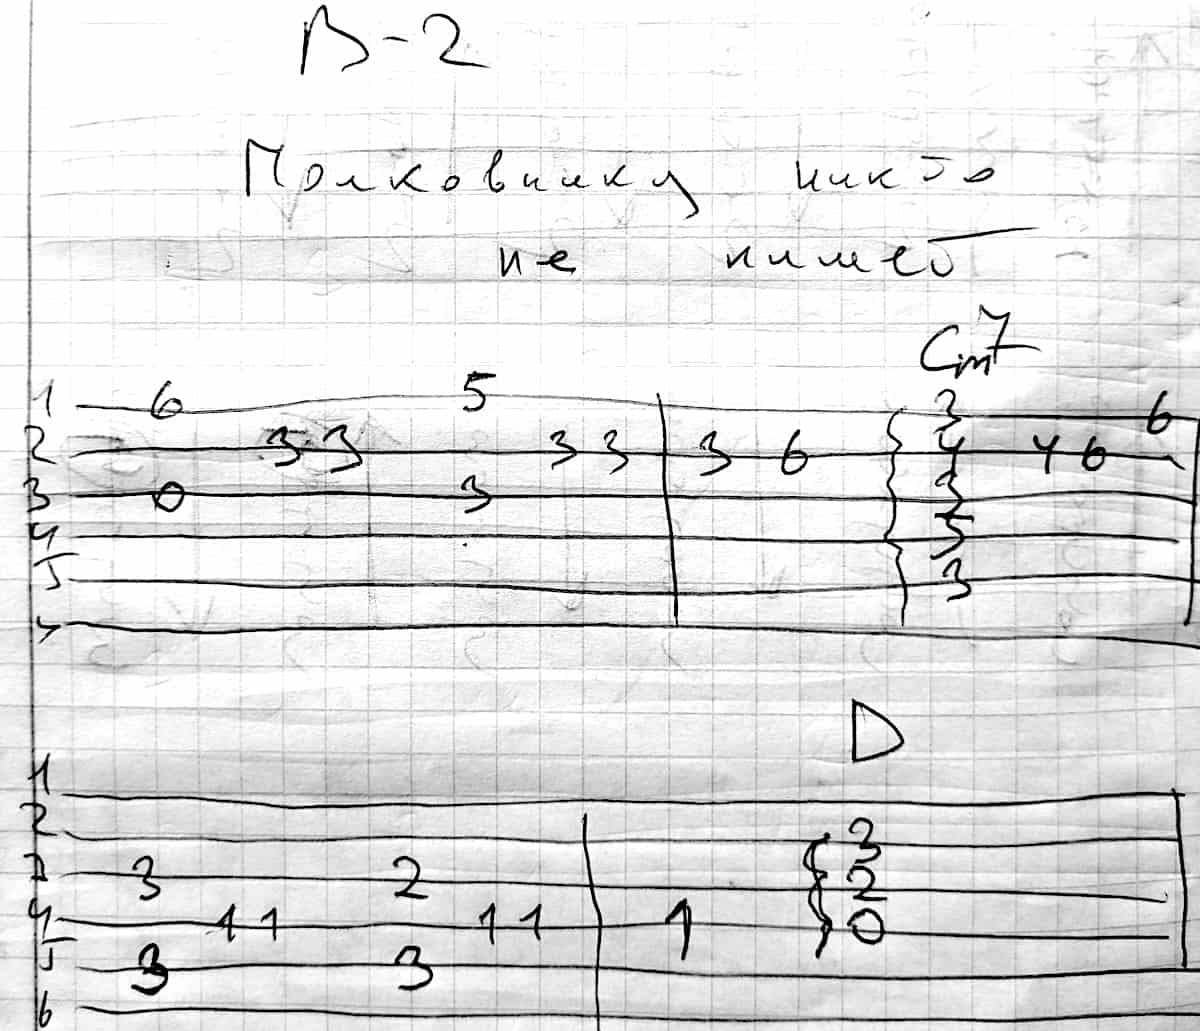 В-2
Полковнику никто
не пишет
Cm7
1 6 5 3 6
2 3 3 3 3 3 6 4 4 6
3 0 3 3
4 5
5 3
D
1
2 3
3 3 2 2
4 1 1 1 1 1 0
5 3 3
6